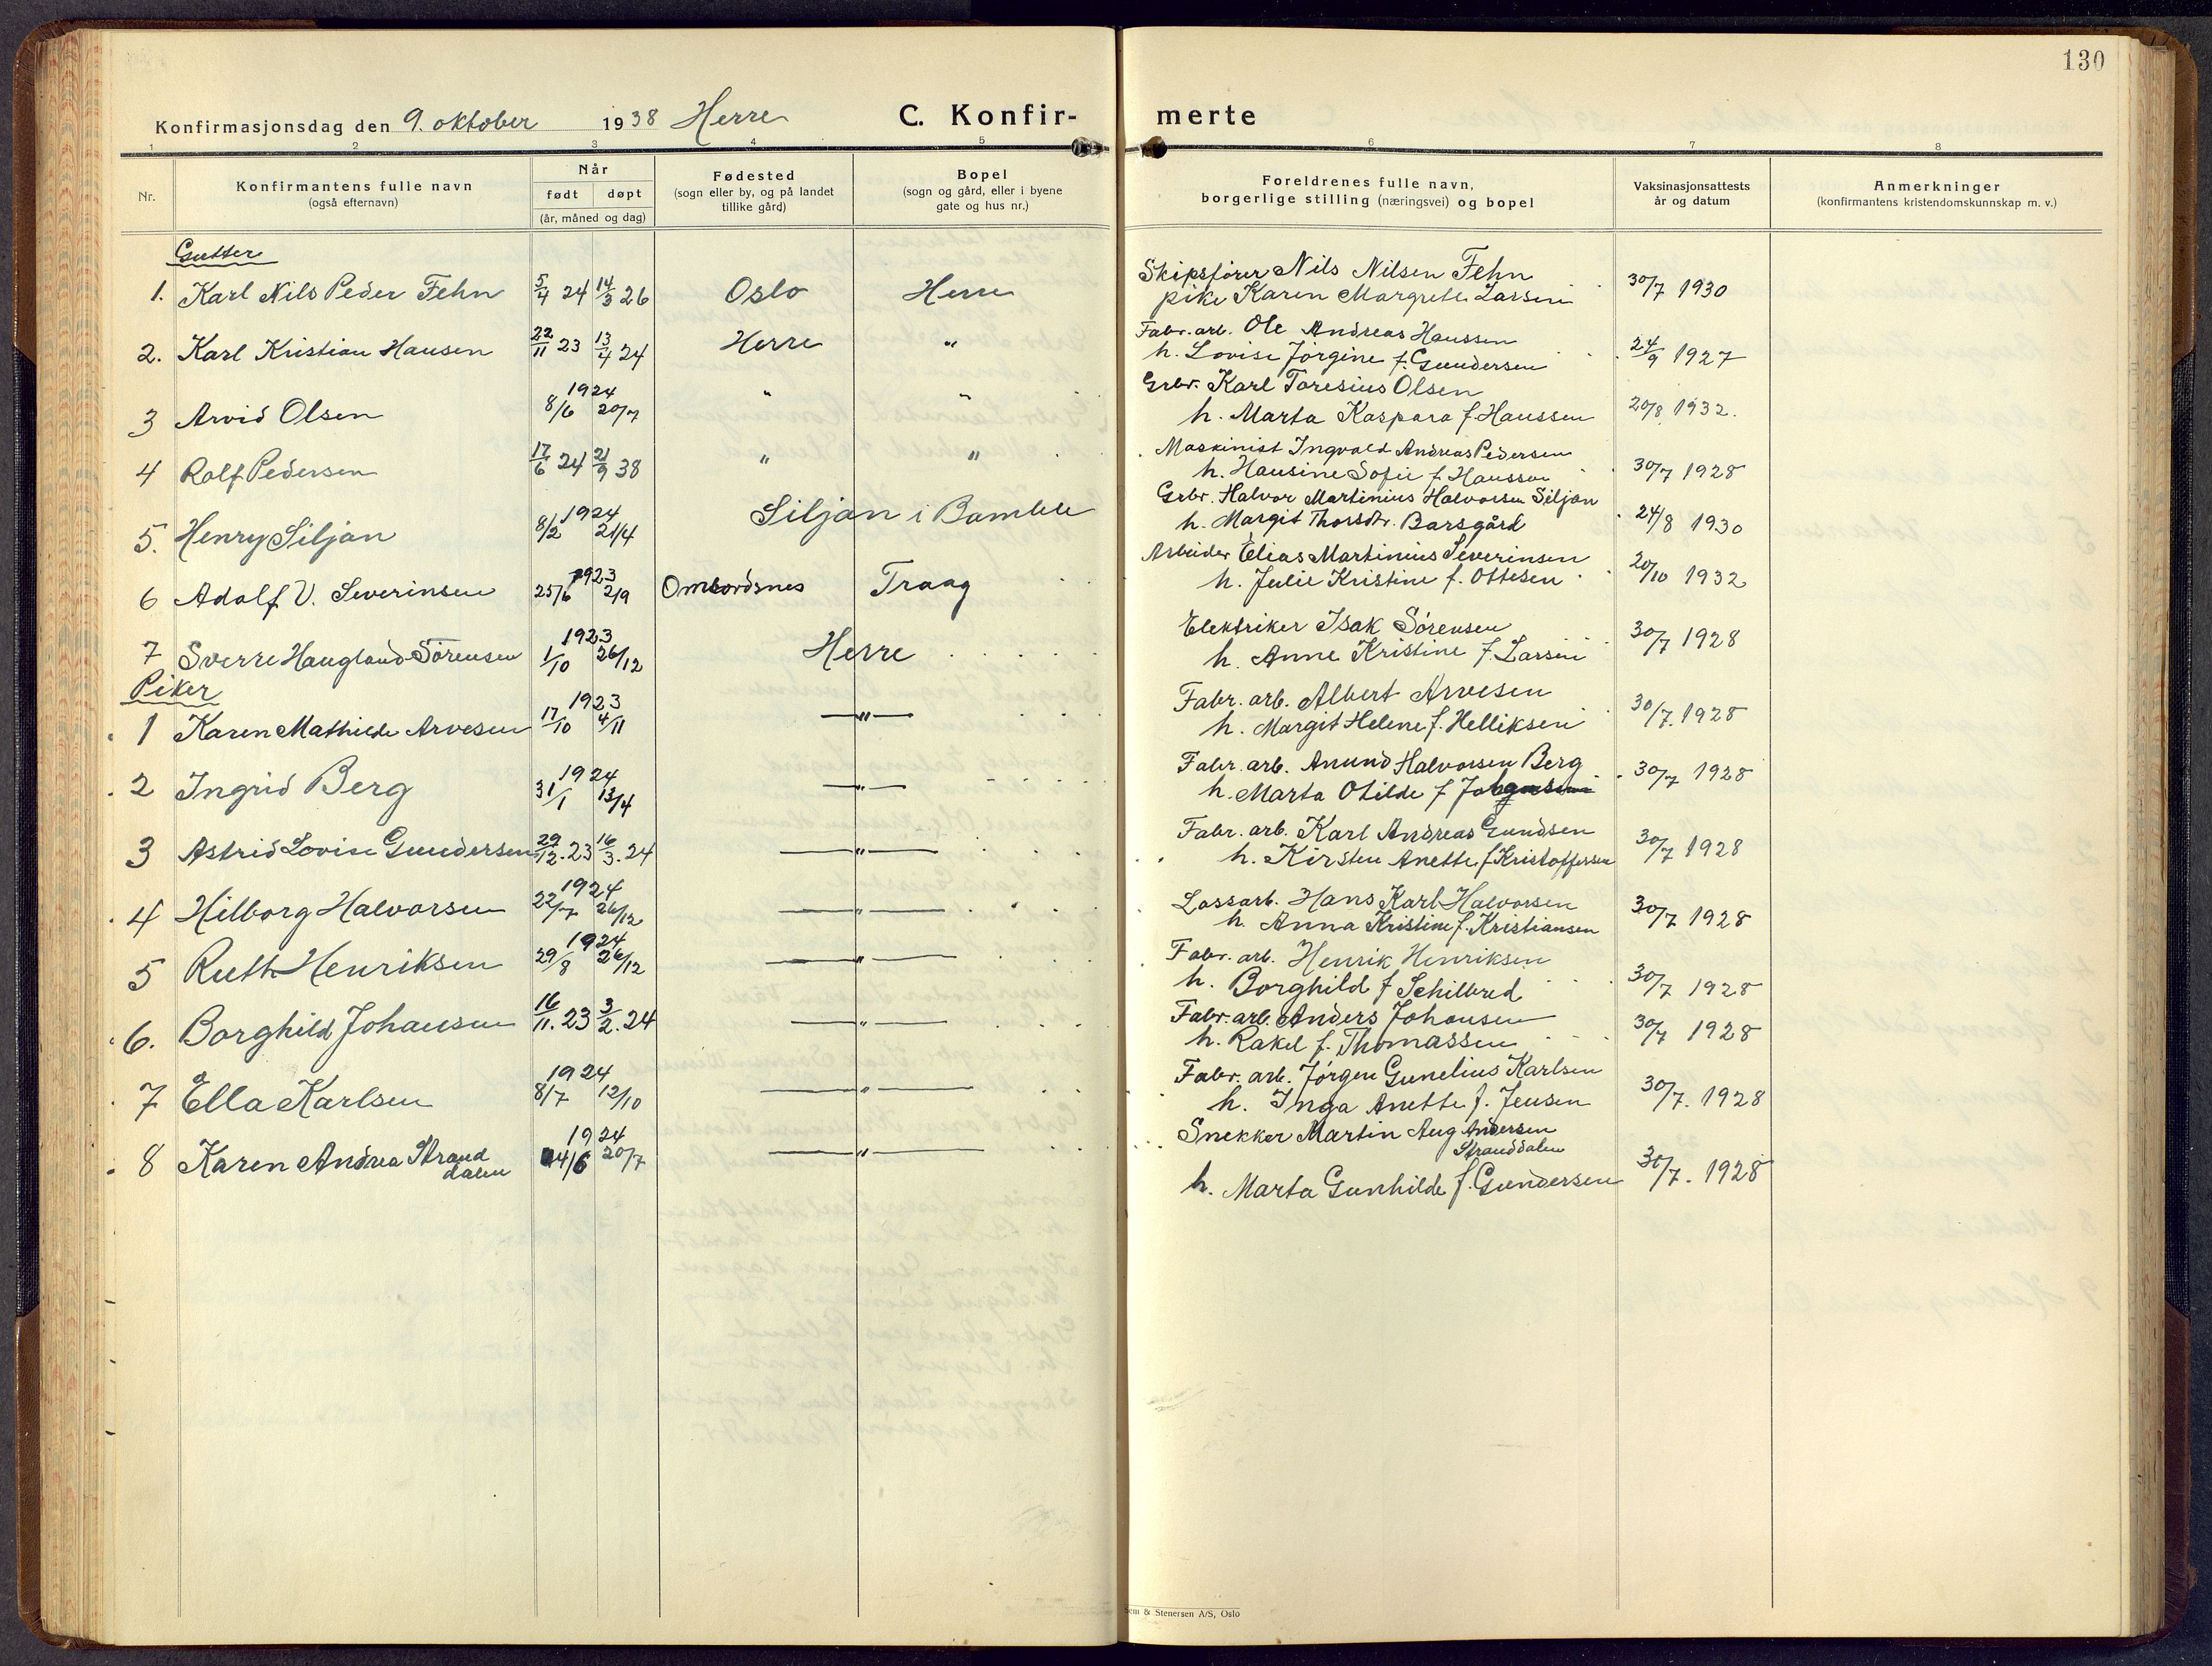 130
Konfirmasjonsdag den 9. oktober 1938 Herre
C. Konfir- merte
1 2 3 4 5 6 7 8
Nr.
Konfirmantens fulle navn
(også efternavn)
Når
født døpt
(år, måned og dag)
Fødested
(sogn eller by, og på landet
tillike gård)
Bopel
(sogn og gård, eller i byene
gate og hus nr.)
Foreldrenes fulle navn,
borgerlige stilling (næringsvei) og bopel
Vaksinasjonsattests
år og datum
Anmerkninger
(konfirmantens kristendomskunnskap m. v.)
Gutter
1. Karl Nils Peder Fehn 5/4 24 14/3 26 Oslo Herre
Skipsfører Nils Nilsen Fehn
pike Karen Margrete Larsen 30/7 1930
2. Karl Kristian Hansen 22/11 23 13/4 24 Herre "
Fabr. arb. Ole Andreas Hanssen
h. Lovise Jørgine f. Gundersen 24/9 1927
3 Arvid Olsen 1924 8/6 20/7 " "
Grbr. Karl Toresius Olsen
h. Marta Kaspara f Hanssen 20/8 1932.
4 Rolf Pedersen 17/6 24 21/9 38 " "
Maskinist Ingvald Andreas Pedersen
h. Hansine Sofie f Hansson 30/7 1928
5. Henry Siljan 1924 8/2 21/4 Siljan i Bamble
Grbr. Halvor Martinius Halvorsen Siljan
h. Margit Thorsdtr. Barsgård 24/8 1930
6 Adolf V. Severinsen 1923 25/6 2/9 Ombordsnes Traag
Arbeider Elias Martinius Severinsen
h. Julie Kristine f. Ottesen 20/10 1932
7 Sverre Haugland Sørensen 1923 1/10 26/12 Herre
Elektriker Isak Sørensen
h. Anne Kristine f. Larsen 30/7 1928
Piker
1 Karen Mathilde Arvesen 1923 17/10 4/11 — " —
Fabr. arb. Albert Arvesen
h. Margit Helene f. Helliksen 30/7. 1928
2 Ingrid Berg 1924 31/1 13/4 — " —
Fabr. arb. Anund Halvorsen Berg
h. Marta Otilde f 30/7 1928
3 Astrid Lovise Gundersen 29/12. 23 16/3. 24 — " —
Fabr. arb. Karl Andreas Gundsen
h. Kirsten Anette f Kristoffersen 30/7 1928
4 Hilborg Halvorsen 1924 22/7 26/12 — " —
Lossarb. Hans Karl Halvorsen
h. Anna Kristine f. Kristiansen 30/7 1928
5 Ruth Henriksen 1924 29/8 26/12 — " —
Fabr. arb. Henrik Henriksen
h. Borghild f Schilbred 30/7 1928
6. Borghild Johansen 16/11. 23 3/2. 24 — " —
Fabr. arb. Anders Johansen
h. Rakel f. Thomassen 30/7 1928
7 Ella Karlsen 1924 8/7 12/10 — " —
Fabr. arb. Jørgen Gunelius Karlsen
h. Inga Anette f. Jensen 30/7. 1928
8 Karen Andrea Strand 1924 4/6 20/7 — " —
dalen
Snekker Martin Aug Andersen
Stranddalen
h. Marta Gunhilde f. Gundersen 30/7. 1928
Sem & Stenersen A/S, Oslo